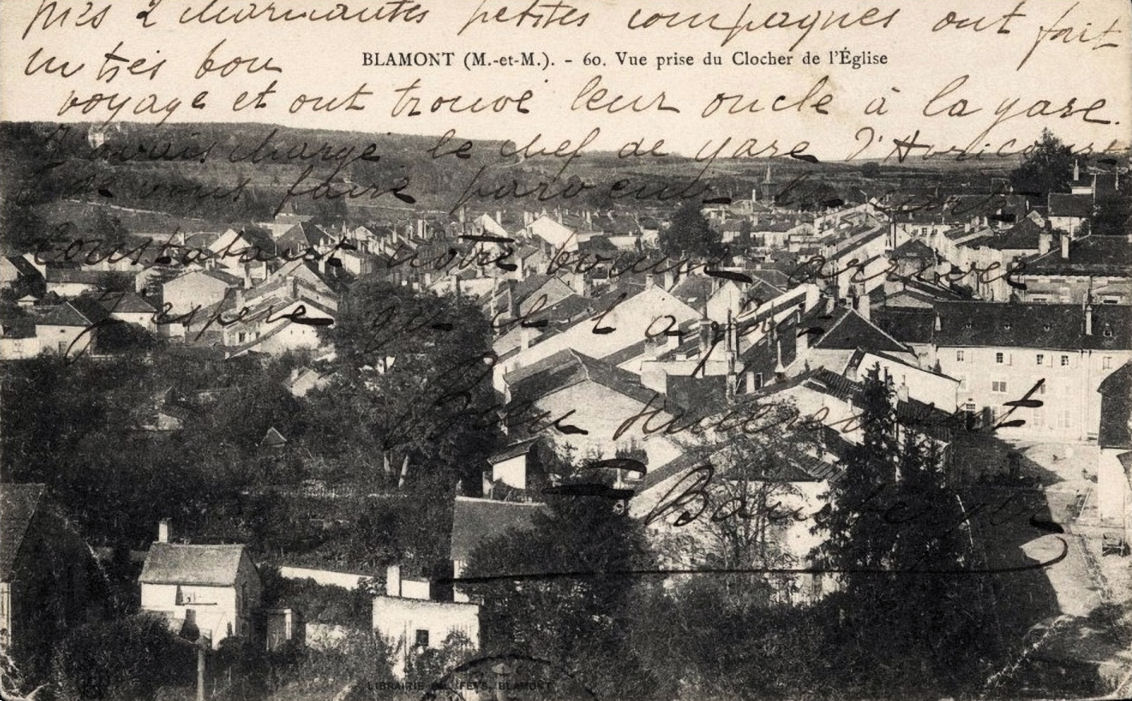 Mes 2 charmantes petites compagnes ont fait
BLAMONT (M.-et-M.). - 60. Vue prise du Clocher de l'Église
un très bon
voyage et ont trouvé leur oncle à la gare.
J'avais chargé le chef de gare d'Avricourt
de vous faire parvenir la carte
constatant notre bonne arrivée
j'espère qu'il l'a fait
Bien
LIBRAIRIE FEYS, BLAMONT